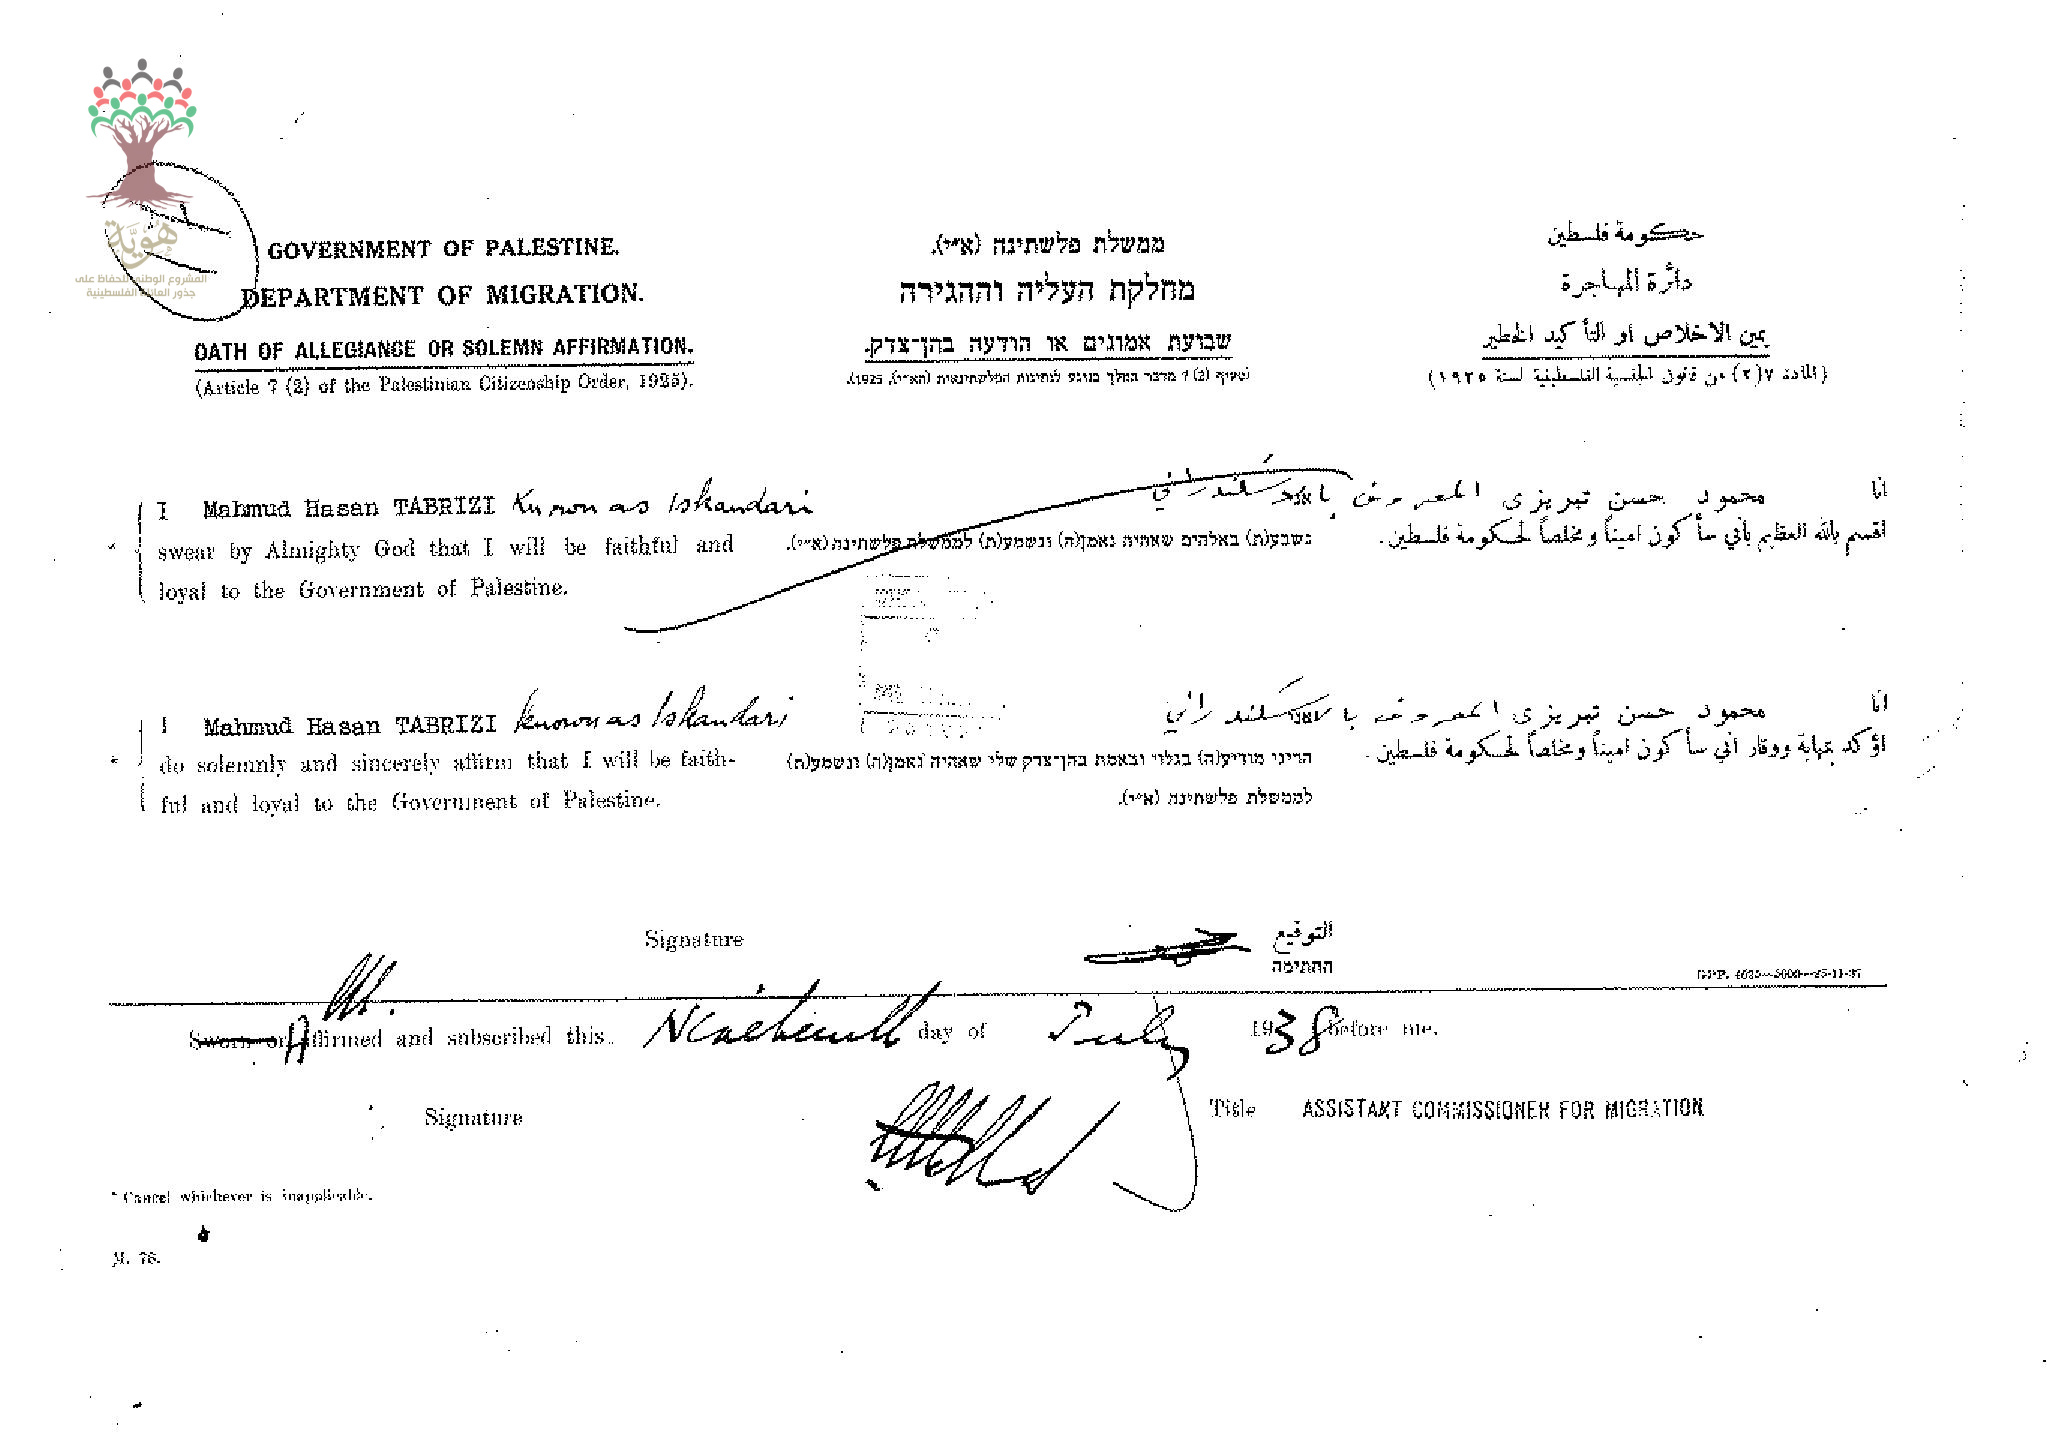 هُوِيَّة
المشروع الوطني للحفاظ على
جذور العائلة الفلسطينية
GOVERNMENT OF PALESTINE.
DEPARTMENT OF MIGRATION.
OATH OF ALLEGIANCE OR SOLEMN AFFIRMATION.
(Article 7 (2) of the Palestinian Citizenship Order, 1925).
ממשלת פלשתינה (א״י).
מחלקת העליה וההגירה
שבועת אמונים או הודעה בהן־צדק.
(סעיף (2) 7 מדבר המלך בנוגע לנתינות הפלשתינאית (הא״י), 1925).
حكومة فلسطين
دائرة المهاجرة
يمين الاخلاص أو التأكيد الخطير
(المادة ٧(٢) من قانون الجنسية الفلسطينية لسنة ١٩٢٥)
I Mahmud Hasan TABRIZI known as Iskandari
swear by Almighty God that I will be faithful and
loyal to the Government of Palestine.
נשבע(ת) באלהים שאהיה נאמן(ה) ונשמע(ת) לממשלת פלשתינה (א״י).
انا محمود حسن تبريزى المعروف
اقسم بالله العظيم بأني سأكون اميناً ومخلصاً لحكومة فلسطين.
I Mahmud Hasan TABRIZI known as Iskandari
do solemnly and sincerely affirm that I will be faith-
ful and loyal to the Government of Palestine.
הריני מודיע(ה) בגלוי ובאמת בהן־צדק שלי שאהיה נאמן(ה) ונשמע(ת)
לממשלת פלשתינה (א״י).
انا محمود حسن تبريزى المعروف
اؤكد بمهابة ووقار اني سأكون اميناً ومخلصاً لحكومة فلسطين.
Signature
التوقيع
החתימה
Sworn or Affirmed and subscribed this Nineteenth day of July 1938 before me.
Signature
Title ASSISTANT COMMISSIONER FOR MIGRATION
* Cancel whichever is inapplicable.
M. 76.